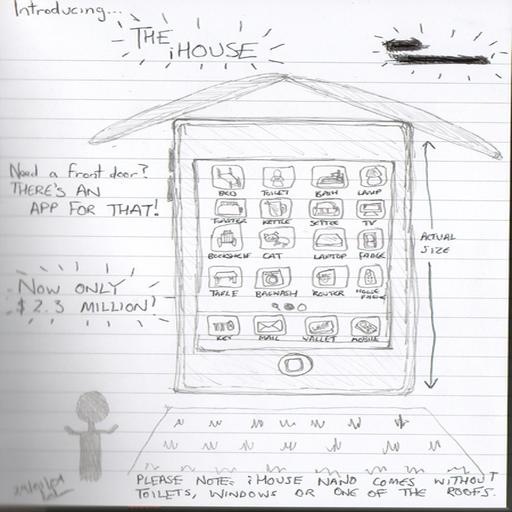 Introducing...
THE
iHOUSE
Need a front door?
THERE'S AN
APP FOR THAT!
BED TOILET BATH LAMP
TOASTER KETTLE SETTEE TV
BOOKSHELF CAT LAPTOP FRIDGE
TABLE ROUTER HOUSE PHONE
KEY MAIL WALLET MOBILE
ACTUAL
SIZE
NOW ONLY
$2.3 MILLION!
PLEASE NOTE: iHOUSE NANO COMES WITHOUT
TOILETS, WINDOWS OR ONE OF THE ROOFS.